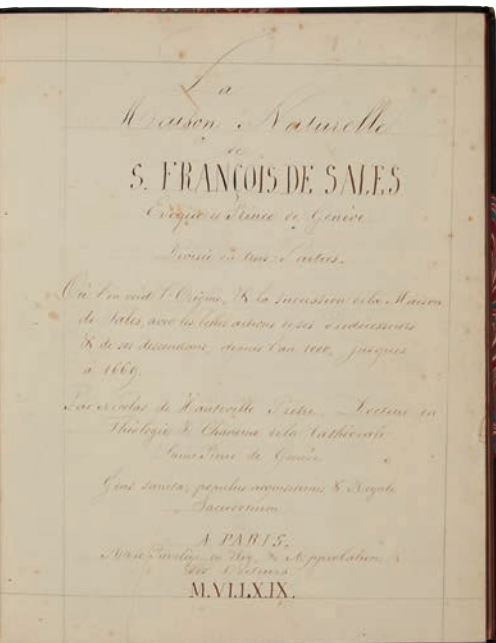 La
Maison Naturelle
de
S. FRANÇOIS DE SALES
Evêque et Prince de Genève
Divisée en trois Parties.
Où l'on void l'Origine, & la succession de la Maison
de Sales, avec les belles actions de ses
& de ses descendans, depuis l'an 1000, jusques
à 1669
Par Nicolas de Hauteville Prêtre, Docteur en
Théologie & Chanoine de la Cathédrale
Saint Pierre de Genève
Gens sancta, populus acquisitionis & Regale
Sacerdotium
A PARIS,
Avec Privilège du Roy, & Approbation
des Docteurs
M.VI.LXIX.